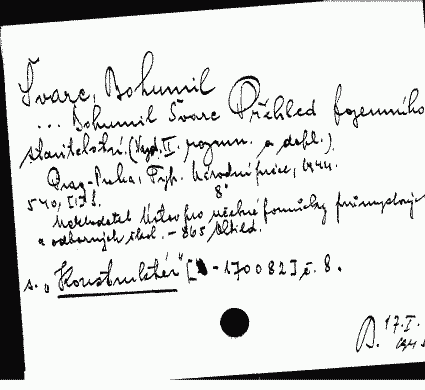 Švarc, Bohumil
... Bohumil Švarc Přehled pozemního
stavitelství. (Vyd. II. rozmn. a dopl.).
Prag-Praha, Typ. Národní práce, 1944.
8°
540, [I] s.
Nakladatel Ústav pro učebné pomůcky průmyslových
a odborných škol. - 865 Abbild.
s. „Konstruktér" [ - 170082] č. 8.
17.I.